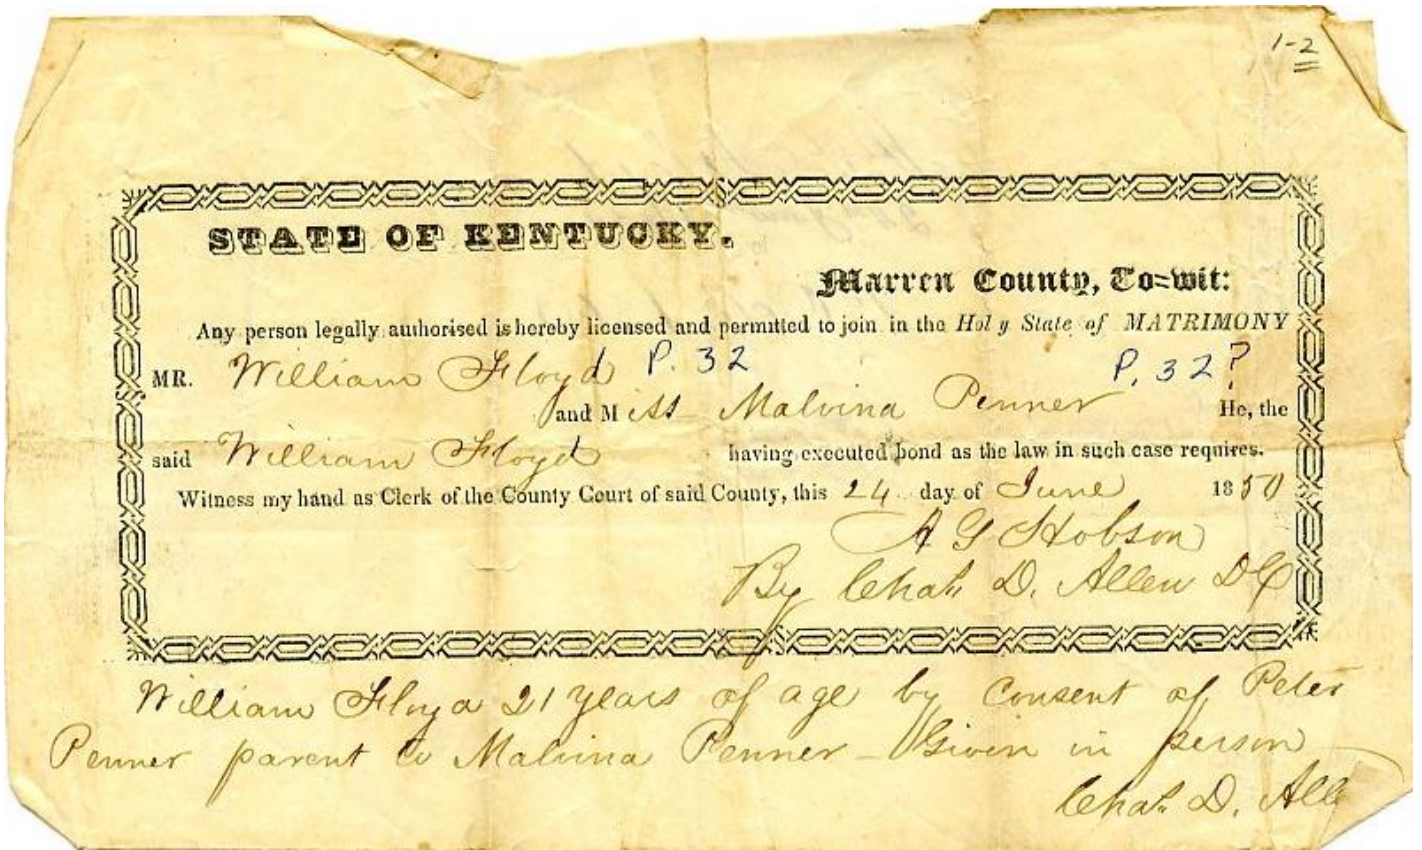 1-2
STATE OF KENTUCKY.
Warren County, To=wit:
Any person legally authorised is hereby licensed and permitted to join in the Holy State of MATRIMONY
MR. William Floyd P. 32 P. 32?
and Miss Malvina Penner He, the
said William Floyd having executed bond as the law in such case requires.
Witness my hand as Clerk of the County Court of said County, this 24 day of June 1850
A G Hobson
By Chas. D. Allen DC
William Floyd 21 years of age by consent of Peter
Penner parent to Malvina Penner - Given in person
Chas. D. Alle